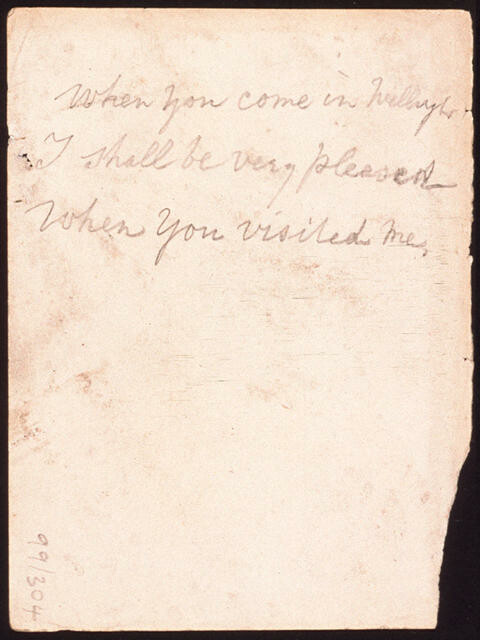 When you come in
I shall be very pleased
When you visited me.
99/304